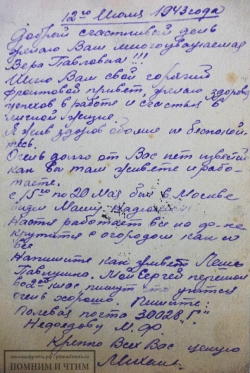 12го Июля 1943 года
Добрый счастливый день
желаю Вам многоуважаемая
Вера Павловна!!!
Шлю Вам свой горячий
фронтовой привет, желаю здоровья
успехов в работе и счастья в
личной жизни.
Я жив здоров обо мне не беспокой
тесь.
Очень долго от Вас нет известий
как вы там живете и рабо-
таете.
с 1го по 20 мая был в Москве
видел Машу,
Настя работает все по до-
с огородом как и
все
Напишите как живет
Павлушко. Мой Сергей перешел
класс пишут что учится
очень хорошо. Пишите:
Полевая почта 30028 "Г"
Недоедову М. Ф.
Крепко Всех Вас целую
Михаил
ПОМНИМ И ЧТИМ